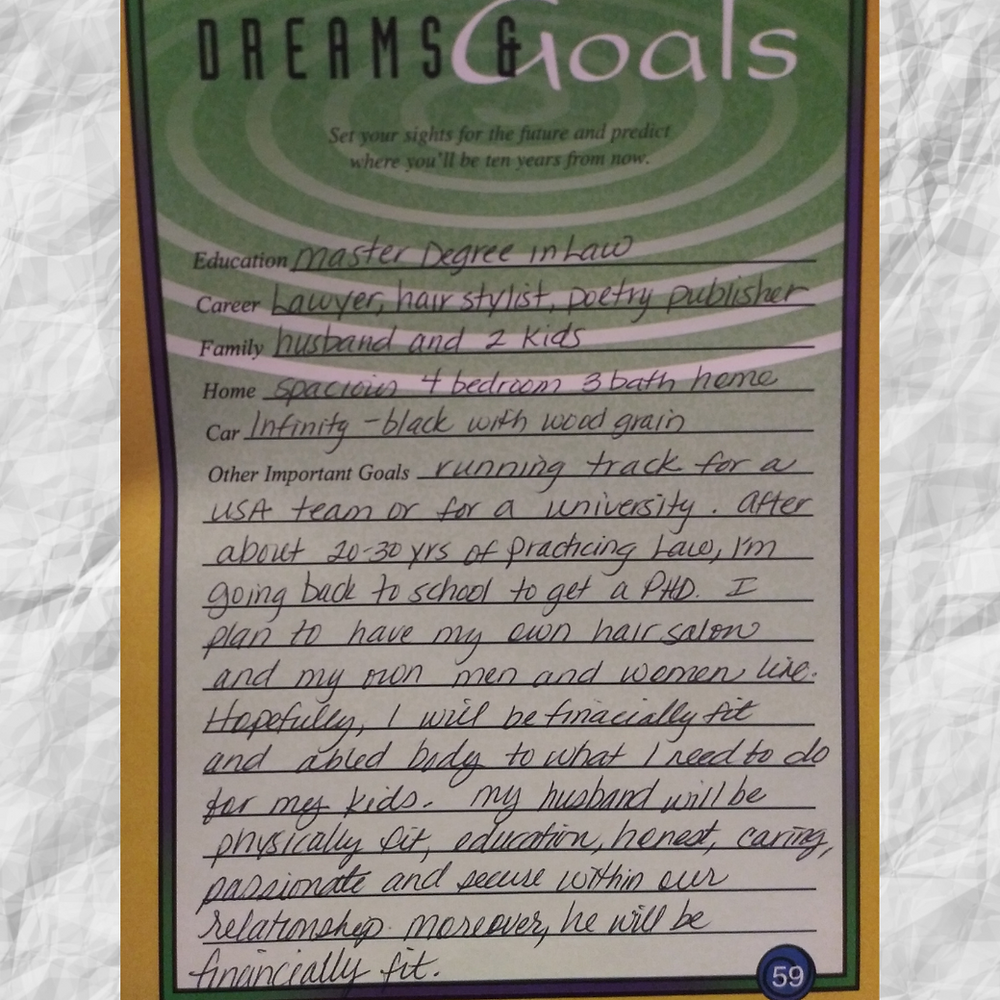 DREAMS & Goals
Set your sights for the future and predict
where you'll be ten years from now.
Education master Degree in Law
Career Lawyer, hair stylist, poetry publisher
Family husband and 2 kids
Home spacious 4 bedroom 3 bath home
Car Infinity - black with wood grain
Other Important Goals running track for a
USA team or for a university. After
about 20-30 yrs of practicing Law, I'm
going back to school to get a PHD. I
plan to have my own hair salon
and my own men and women line.
Hopefully, I will be finacially fit
and abled body to what I need to do
for my kids. My husband will be
physically fit, education, honest, caring,
passionate and secure within our
relationship. moreover, he will be
financially fit.
59